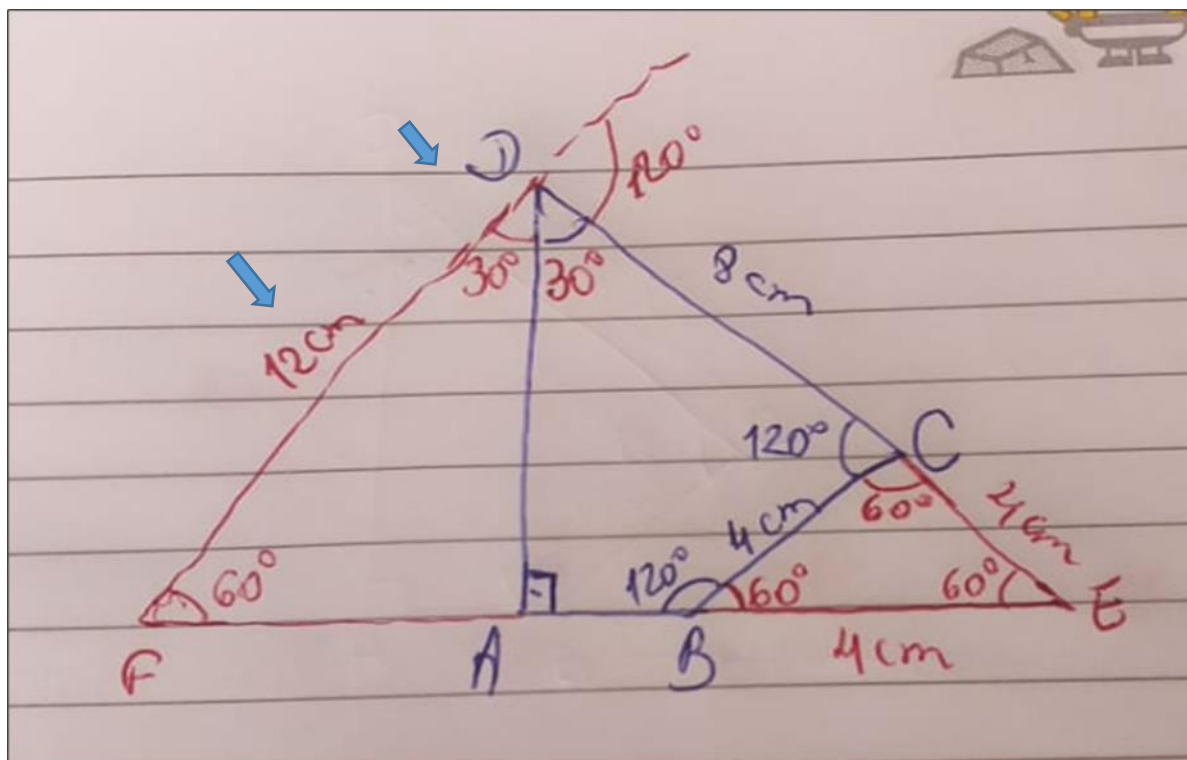 D
120°
30°
30°
8 cm
12 cm
120°
C
60°
4 cm
4 cm
60°
120°
60°
60°
E
F
A
B
4 cm